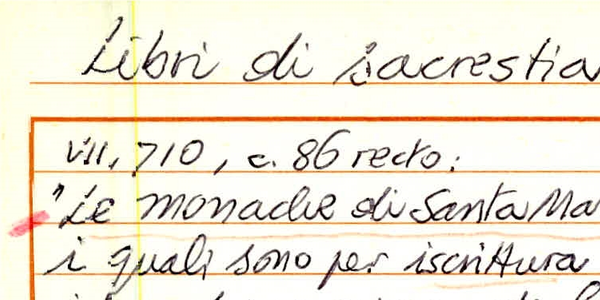 Libri di sacrestia
VII, 710, c. 86 recto:
"Le monache di Santa Ma
i quali sono per iscrittura